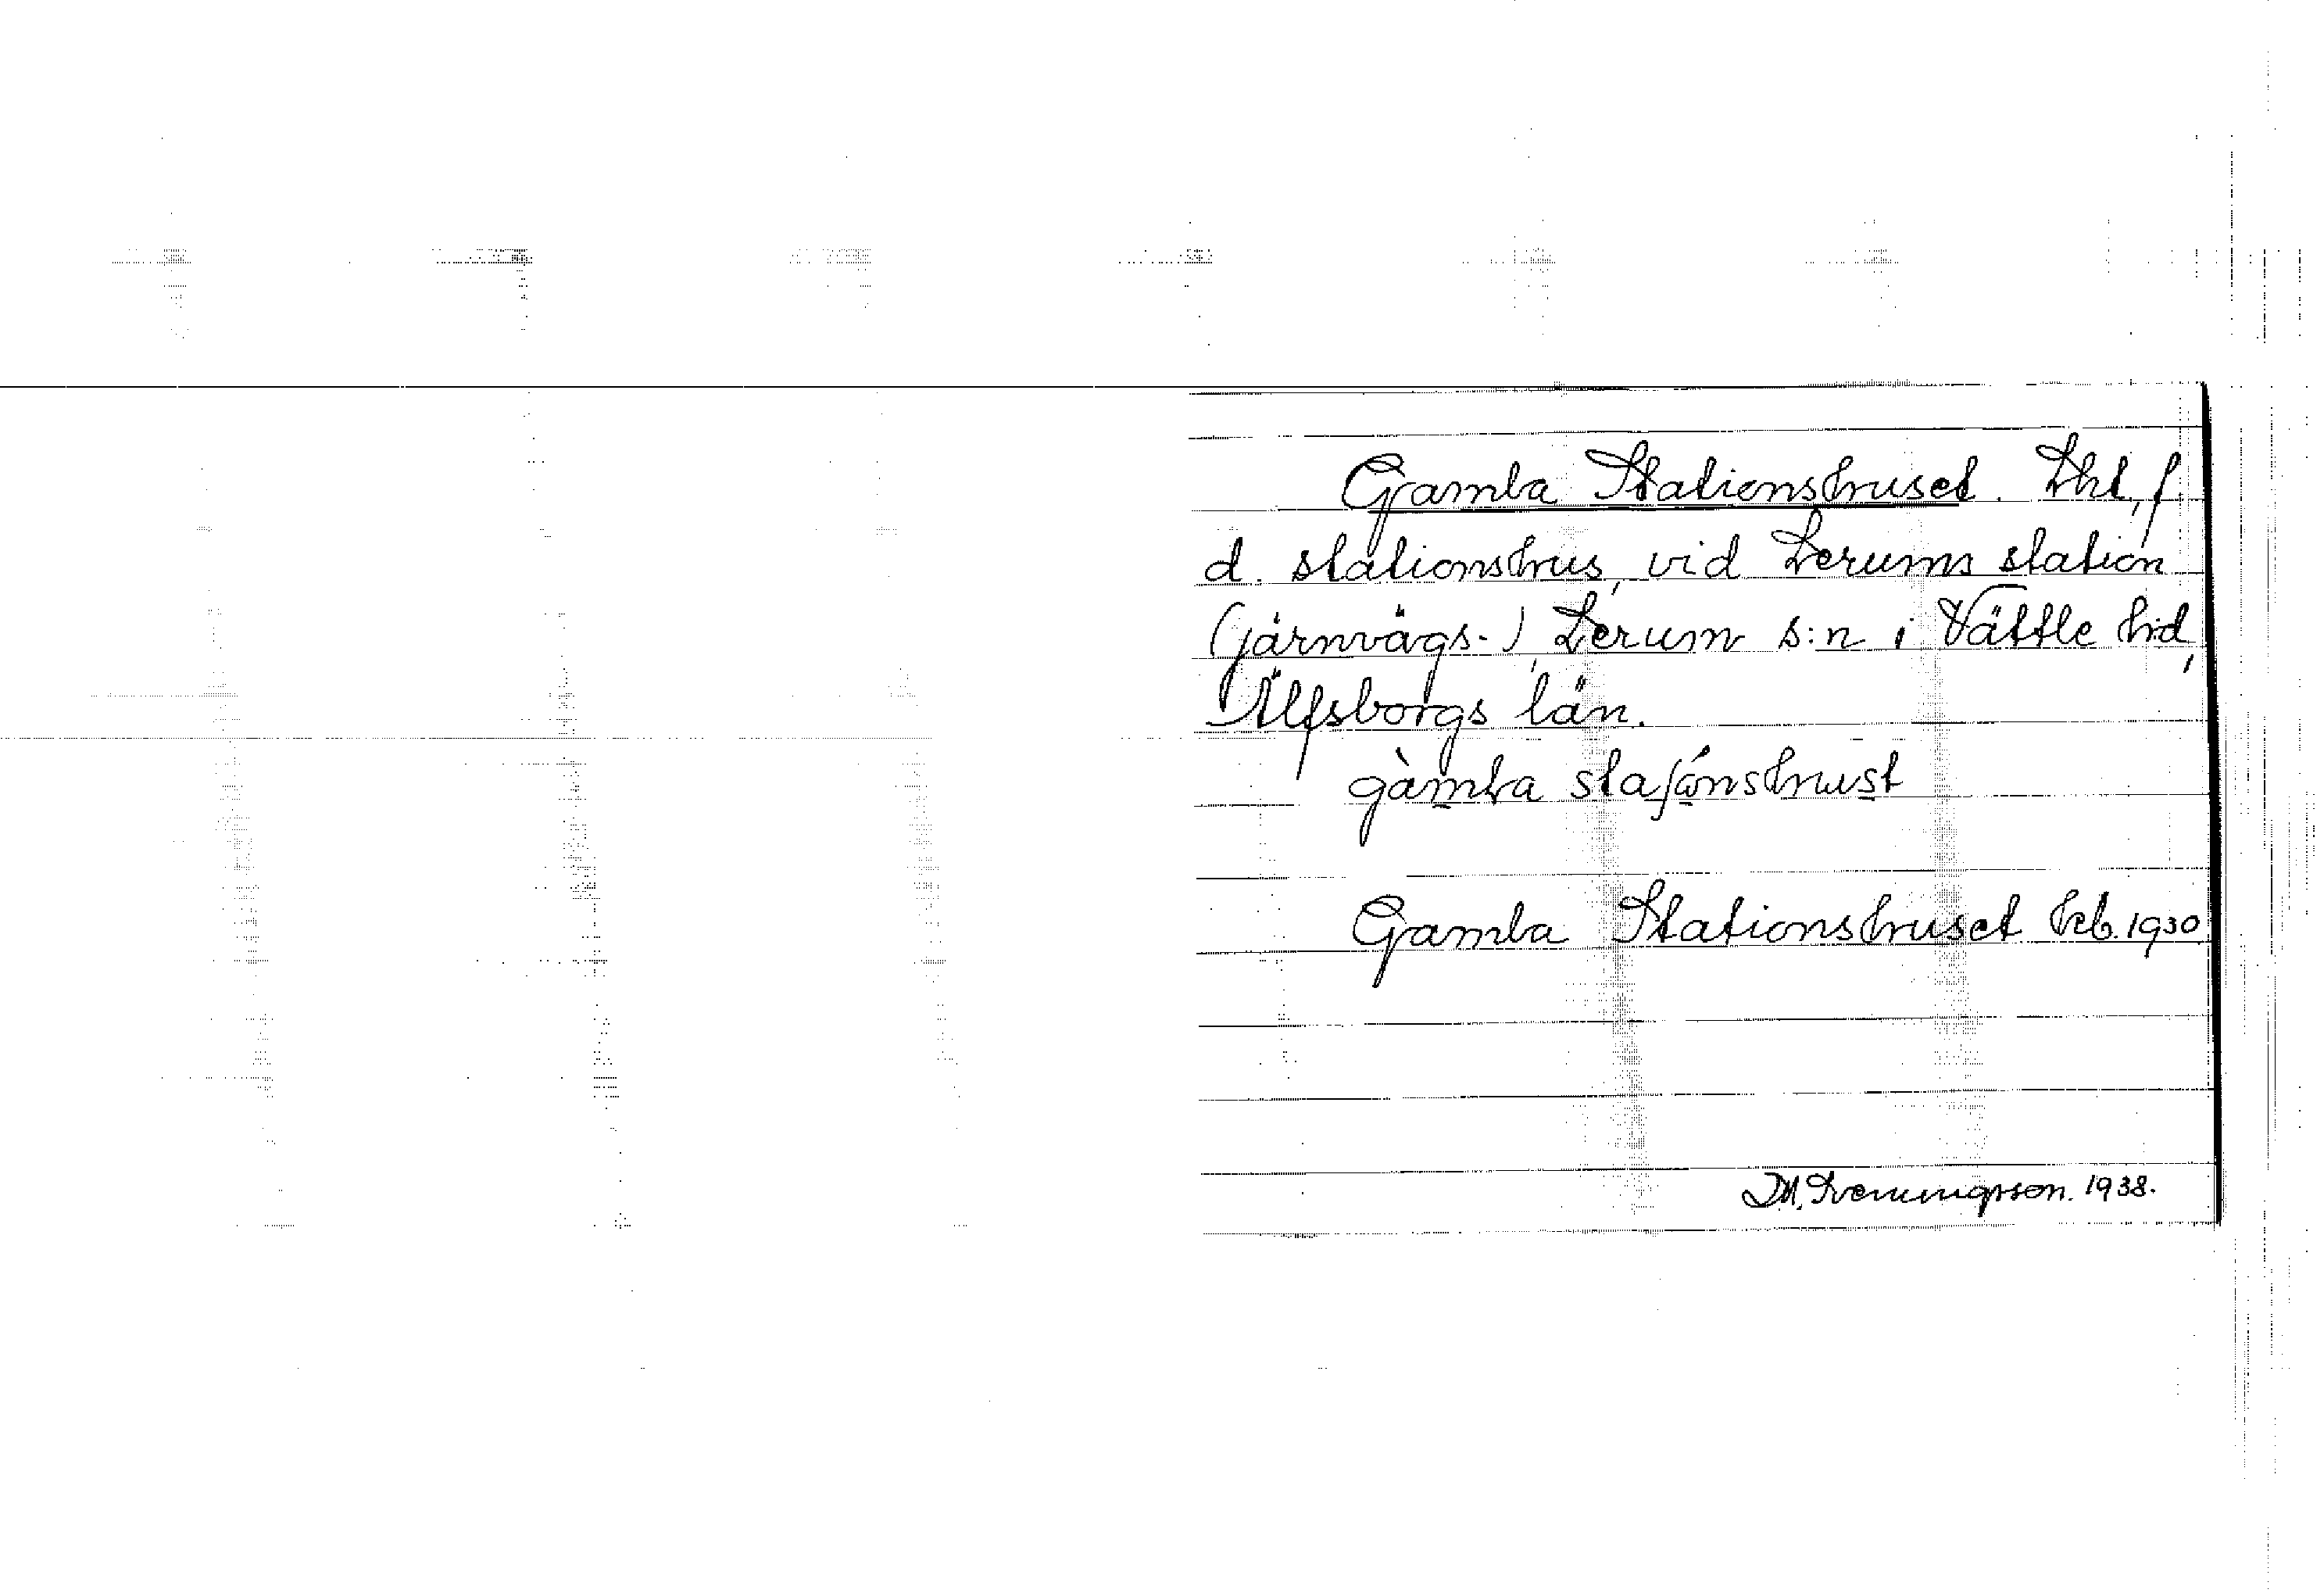 Gamla Stationshuset. Lht, f.
d. stationshus, vid Lerums station
(järnvägs-), Lerum s:n i Vättle hd,
Älfsborgs län.
gàmla staʃónshust
Gamla Stationshuset hfb. 1930
1938.